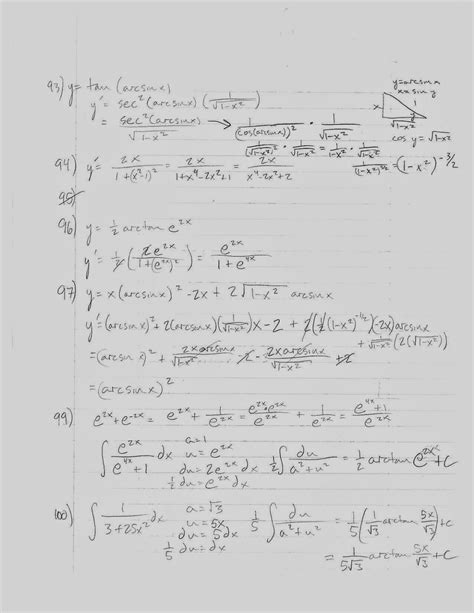 93) y = tan (arcsinx)
y' = sec²(arcsinx) (1/√(1-x²))
y=arcsinx
x=siny
x
1
√(1-x²)
cos y = √(1-x²)
= sec²(arcsinx)/√(1-x²) → 1/(cos(arcsinx))² · 1/√(1-x²)
1/(√(1-x²))² · 1/√(1-x²) = 1/(1-x²) · 1/√(1-x²) = 1/(1-x²)^(3/2) = (1-x²)^(-3/2)
94) y' = 2x/(1+(x²-1)²) = 2x/(1+x⁴-2x²+1) = 2x/(x⁴-2x²+2)
95)
96) y = ½ arctan e^(2x)
y' = ½ (2e^(2x)/(1+(e^(2x))²)) = e^(2x)/(1+e^(4x))
97) y = x(arcsinx)² -2x + 2√(1-x²) arcsinx
y' = (arcsinx)² + 2(arcsinx)(1/√(1-x²))x - 2 + 2(½(1-x²)^(-1/2))(-2x)arcsinx
+ 1/√(1-x²) (2(√(1-x²)))
= (arcsinx)² + 2xarcsinx/√(1-x²) - 2 - 2xarcsinx/√(1-x²) + 2
= (arcsinx)²
99) e^(2x)+e^(-2x) = e^(2x) + 1/e^(2x) = e^(2x)·e^(2x)/e^(2x) + 1/e^(2x) = (e^(4x)+1)/e^(2x)
∫ e^(2x)/(e^(4x)+1) dx
a=1
u=e^(2x)
du=2e^(2x)dx
½du=e^(2x)dx
½∫ du/(a²+u²) = ½ arctan e^(2x) + C
100) ∫ 1/(3+25x²) dx
a=√3
u=5x
du=5dx
1/5 du=dx
1/5 ∫ du/(a²+u²) = 1/5 (1/√3 arctan 5x/√3) + C
= 1/(5√3) arctan 5x/√3 + C